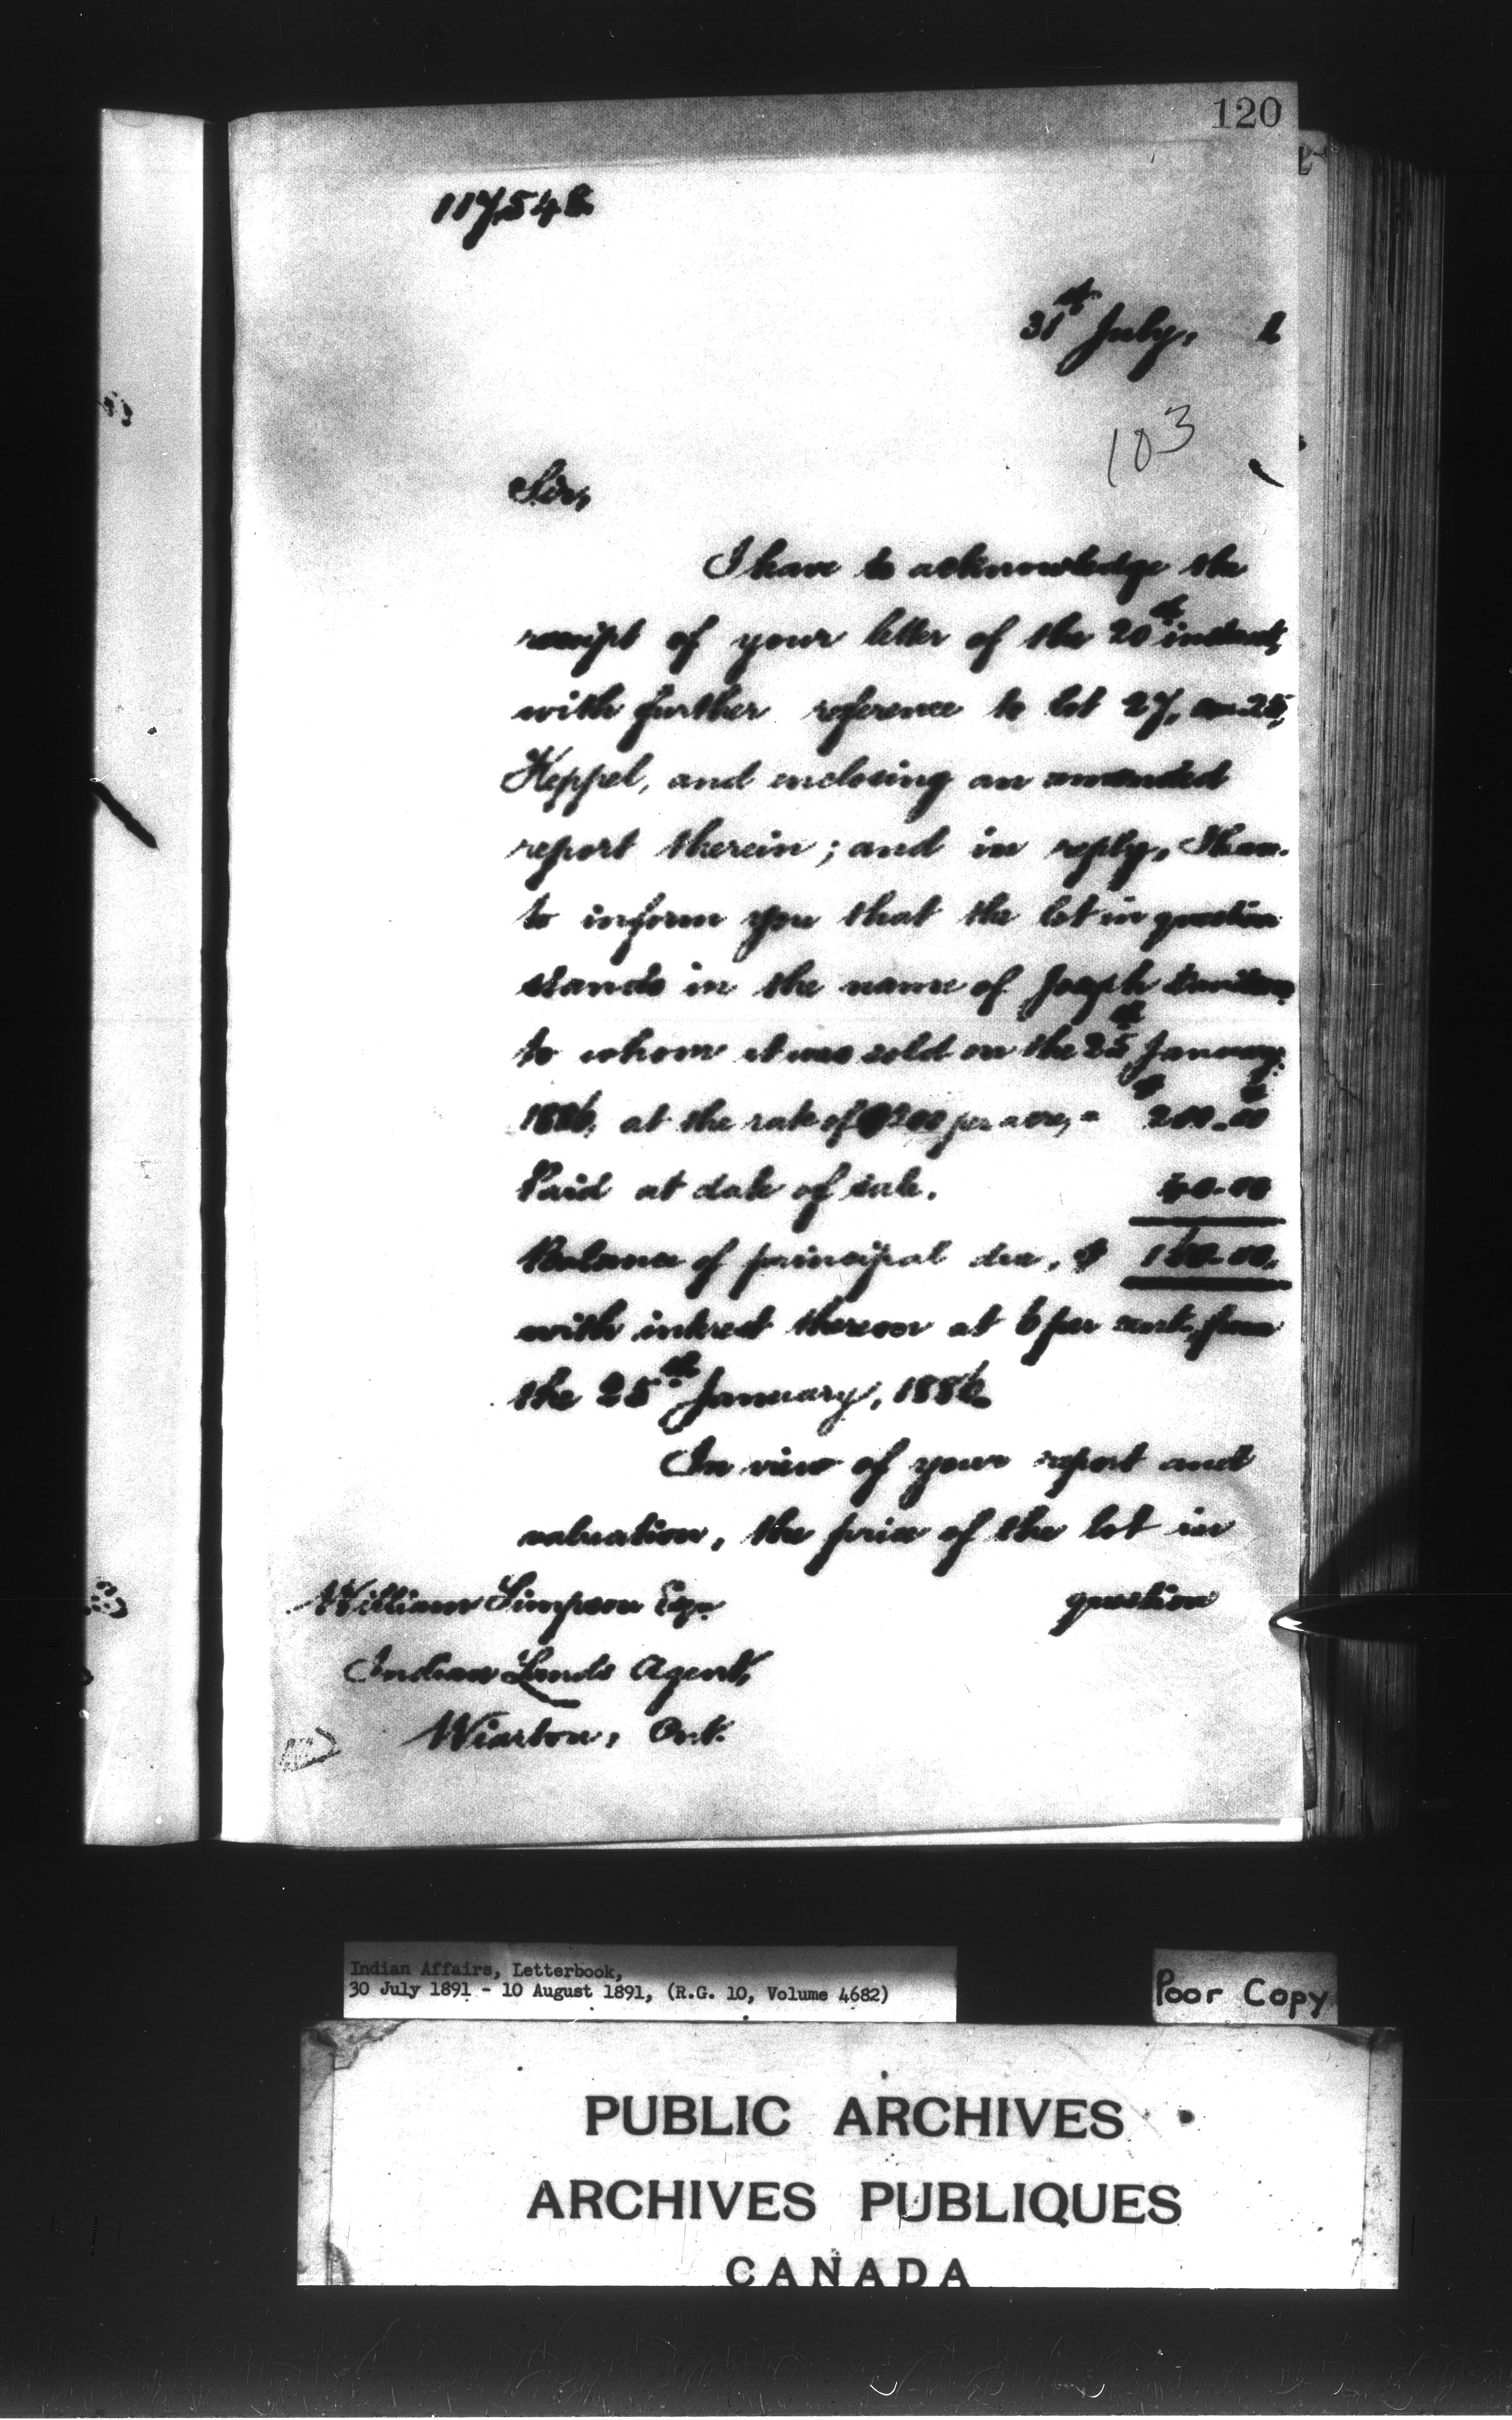 120
117,546
31st July, 1
103
Sir,
I have to acknowledge the
receipt of your letter of the 20th instant,
with further reference to lot 27, con 25,
Keppel, and enclosing an amended
report therein; and in reply, I have
to inform you that the lot in question
stands in the name of Joseph
to whom it was sold on the 25th January,
1886, at the rate of $200 per acre, = $200.00
Paid at date of sale. 40.00
Balance of principal due, $ 160.00.
with interest thereon at 6 per cent, from
the 25th January, 1886.
In view of your report and
valuation, the price of the lot in
question
William Simpson Esq.
Indian Lands Agent,
Wiarton, Ont.
Indian Affairs, Letterbook,
30 July 1891 - 10 August 1891, (R.G. 10, Volume 4682)
Poor Copy
PUBLIC ARCHIVES
ARCHIVES PUBLIQUES
CANADA